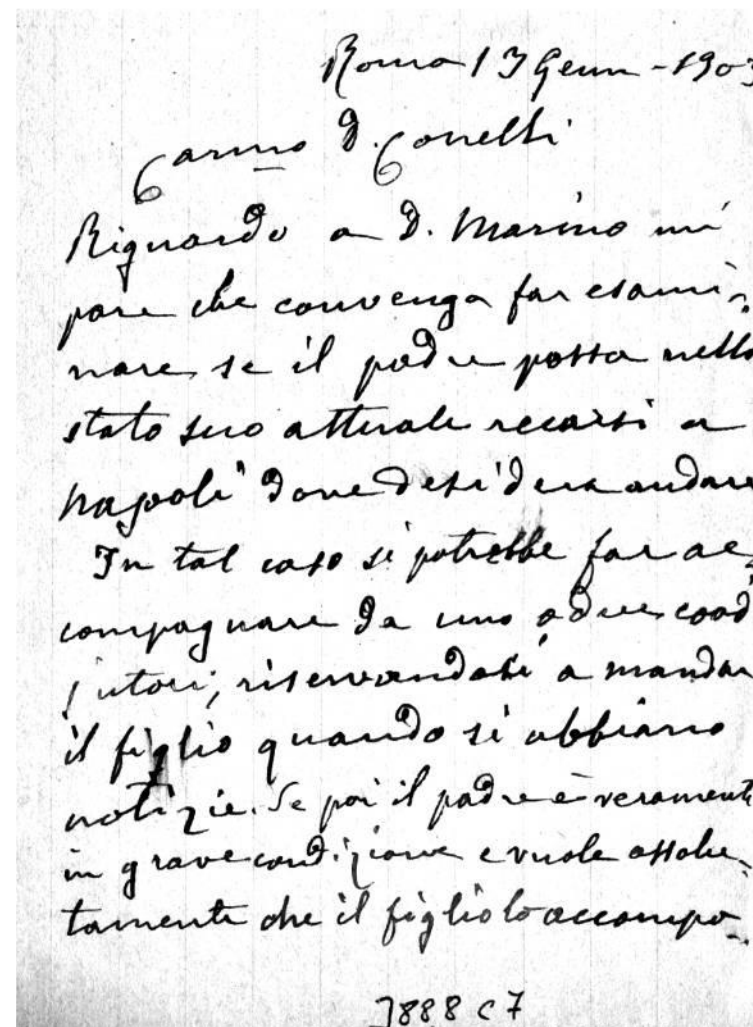 Roma 13 Genn - 1903
Carmo D. Conelli
Riguardo a D. Marino mi
pare che convenga far esami-
nare se il padre possa nello
stato suo attuale recarsi a
Napoli dove desidera andare
In tal caso si potrebbe far ac-
compagnare da uno o due coad
jutori, riservandosi a mandar
il figlio quando si abbiano
notizie. Se poi il padre è veramente
in grave condizione e vuole assolu-
tamente che il figlio lo accompa-
7888 c7